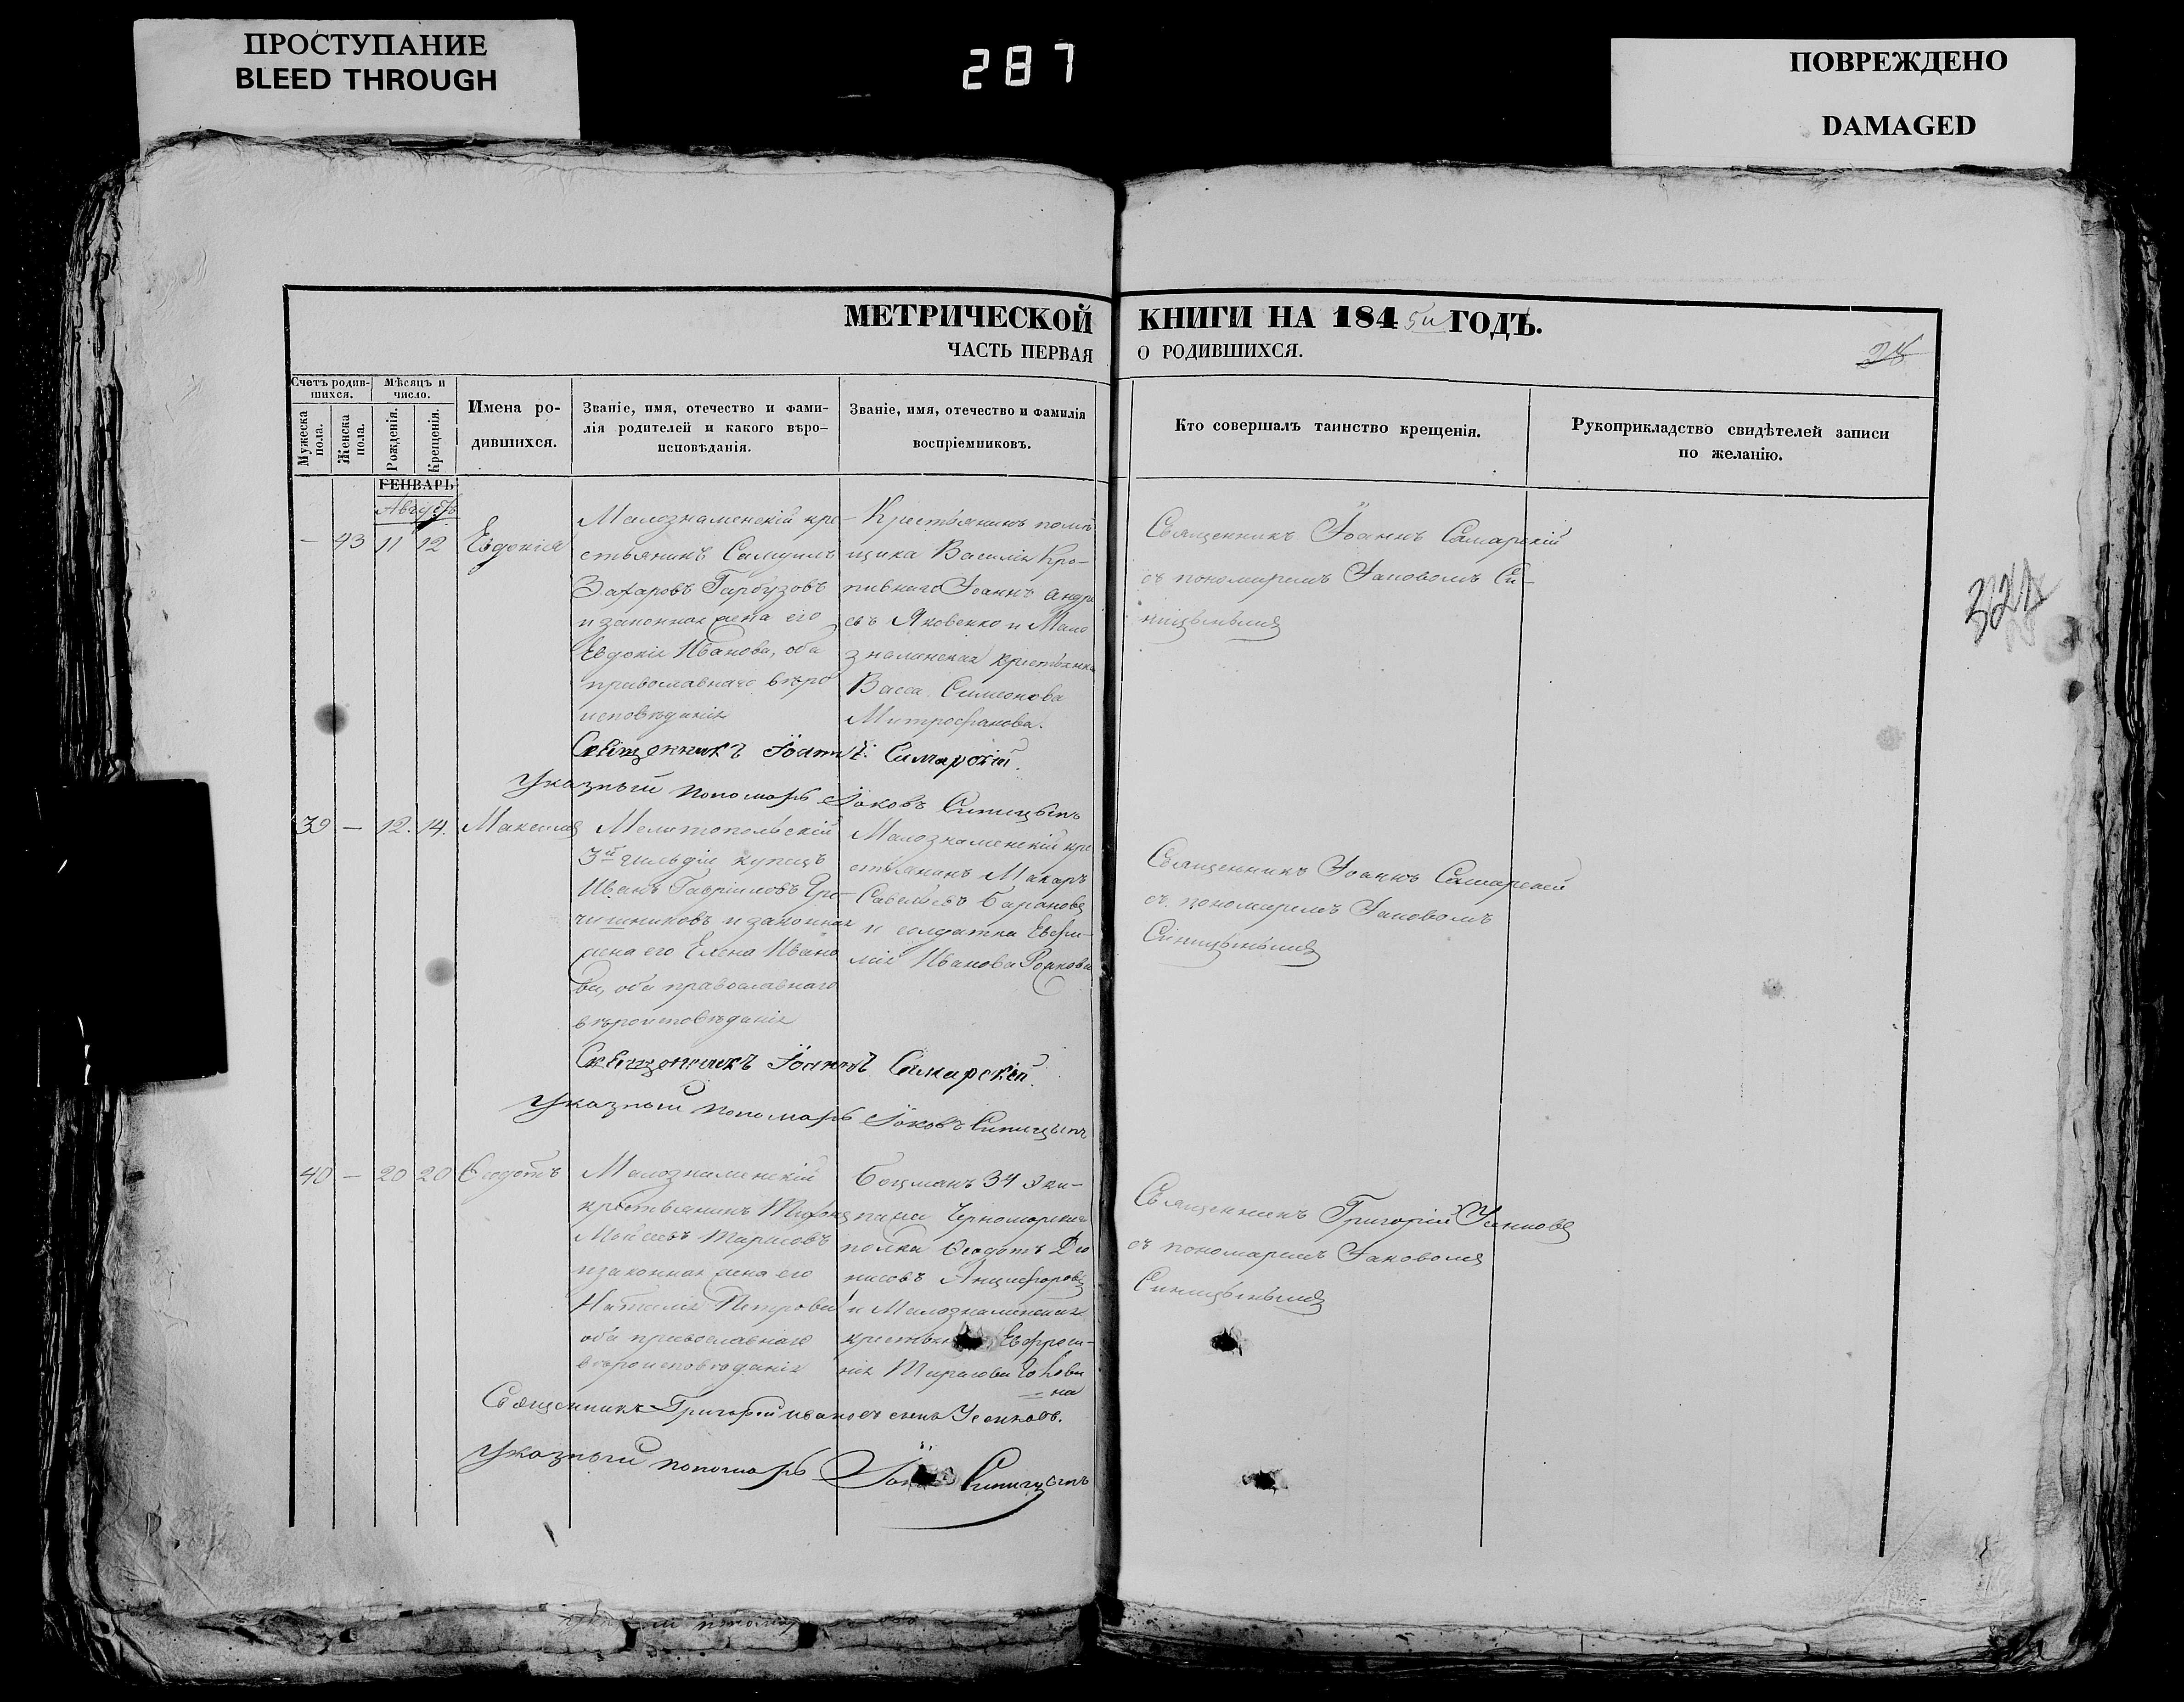 ПРОСТУПАНИЕ
BLEED THROUGH
287
ПОВРЕЖДЕНО
DAMAGED
МЕТРИЧЕСКОЙ КНИГИ НА 1845й ГОДЪ.
ЧАСТЬ ПЕРВАЯ О РОДИВШИХСЯ.
28
Счетъ родив-
шихся.
Мѣсяцъ и
число.
Мужеска
пола.
Женска
пола.
Рожденія.
Крещенія.
Имена ро-
дившихся.
Званіе, имя, отечество и фами-
лія родителей и какого вѣро-
исповѣданія.
Званіе, имя, отечество и фамилія
воспріемниковъ.
Кто совершалъ таинство крещенія.
Рукоприкладство свидѣтелей записи
по желанію.
ГЕНВАРЬ
Августъ
— 43 11 12 Евдокія
Малознаменскій кре-
стьянинъ Самуилъ
Захаровъ Гарбузовъ
и законная жена его
Евдокія Иванова, оба
православнаго вѣро
исповѣданія
Крестьянинъ помѣ
щика Василія Кро-
пивнаго Іоаннъ Андре
евъ Яковенко и Мало
знаменская крестьянка
Васса Симеонова
Митрофанова.
Священникъ Іоаннъ Самарскій
съ пономаремъ Іаковомъ Си-
ницынымъ
Священникъ Іоаннъ Самарскій.
Указный пономарь Іаковъ Синицынъ
39 — 12. 14. Максимъ
Мелитопольскій
3й гильдіи купецъ
Иванъ Гавріиловъ Гре-
чишниковъ и законная
жена его Елена Ивано
ва, оба православнаго
вѣроисповѣданія
Малознаменскій кре
стьянинъ Макаръ
Савельевъ Барановъ
и солдатка Евфи-
мія Иванова
Священникъ Іоаннъ Самарскій
съ пономаремъ Іаковомъ
Синицынымъ
Священникъ Іоаннъ Самарскій.
Указный пономарь Іаковъ Синицынъ
40 — 20 20 Ѳеодотъ
Малознаменскій
крестьянинъ Тихонъ
Моисеевъ Тарасовъ
и законная жена его
Наталія Петрова
оба православнаго
вѣроисповѣданія
Боцманъ 34 Эки-
пажа Черноморскаго
Ѳеодотъ Де
нисовъ Анциферовъ
и Малознаменская
Евфроси-
нія Тарасова
Священникъ Григорій Усенковъ
съ пономаремъ Іаковомъ
Синицынымъ
Священникъ Григорій Ивановъ сынъ Усенковъ.
Указный пономарь Синицынъ